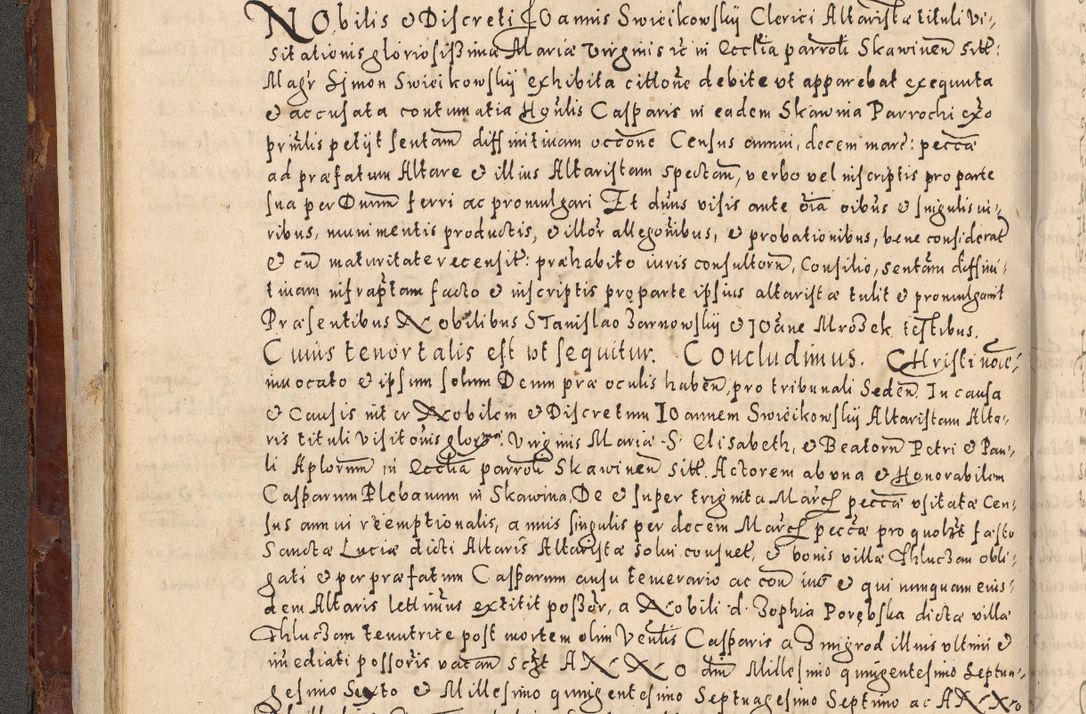 Nobilis et Discreti Joannis Swiecikowskij Clerici Altaristæ tituli Vi-
sitationis gloriosissimæ Mariæ Virginis etc in Ecclia parroli Skawinen sitt:
Magr Simon Swiecikowskij exhibita cittone debite ut apparebat exequuta
et accusata contumatia Honlis Casparis in eadem Skawina Parrochi exo
prinlis petijt sentam diffinitivam occone Census annui, decem marc: pecca
ad præfatum Altare et illius Altaristam spectan, verbo vel inscriptis pro parte
sua per Dnum ferri ac promulgari Et dnus visis ante oia oibus et singulis iu-
ribus, munimentis productis, et illor allegonibus, et probationibus, bene considerat
et cu maturitate recensit: præhabito iuris consultorn, Consilio, sentam diffini-
tivam infraptam facto et inscriptis pro parte ipsius altaristæ tulit et promulgavit
Præsentibus Nobilibus Stanislao Zarnowskij et Joane Mrozek testibus.
Cuius tenor talis est ut sequitur. Concludimus. Christi noie
invocato et ipsum solum Deum præ oculis haben, pro tribunali Seden. In causa
et Causis inter Nobilem et Discretum Joannem Swiecikowskij Altaristam Alta-
ris tituli Visitonis glorse Virginis Mariæ S. Elisabeth, et Beatorn Petri et Pau-
li Aplorum in Ecclia parroli Skawinen sitt. Actorem ab una et Honorabilem
Casparum Plebanum in Skawina, De et super triginta March pecca usitatæ Cen-
sus annui reemptionalis, annis singulis per decem March pecca pro quolzt festo
Sanctæ Luciæ dicti Altaris Altaristæ solui consuet, et bonis villæ Chluczan obli-
gati et per præfatum Casparum ausu temerario ac con ius et qui nunquam eius-
dem Altaris lettimus extitit possor, a Nobili d: Zophia Porębska dictæ villæ
Chluczan tenutrice post mortem olim Venlis Casparis a Zmigrod illius ultimi et
imediati possoris vacan sczt A N X o dni Millesimo quingentesimo Septua-
gesimo Sexto et Millesimo quingentesimo Septuagesimo Septimo ac A N X o